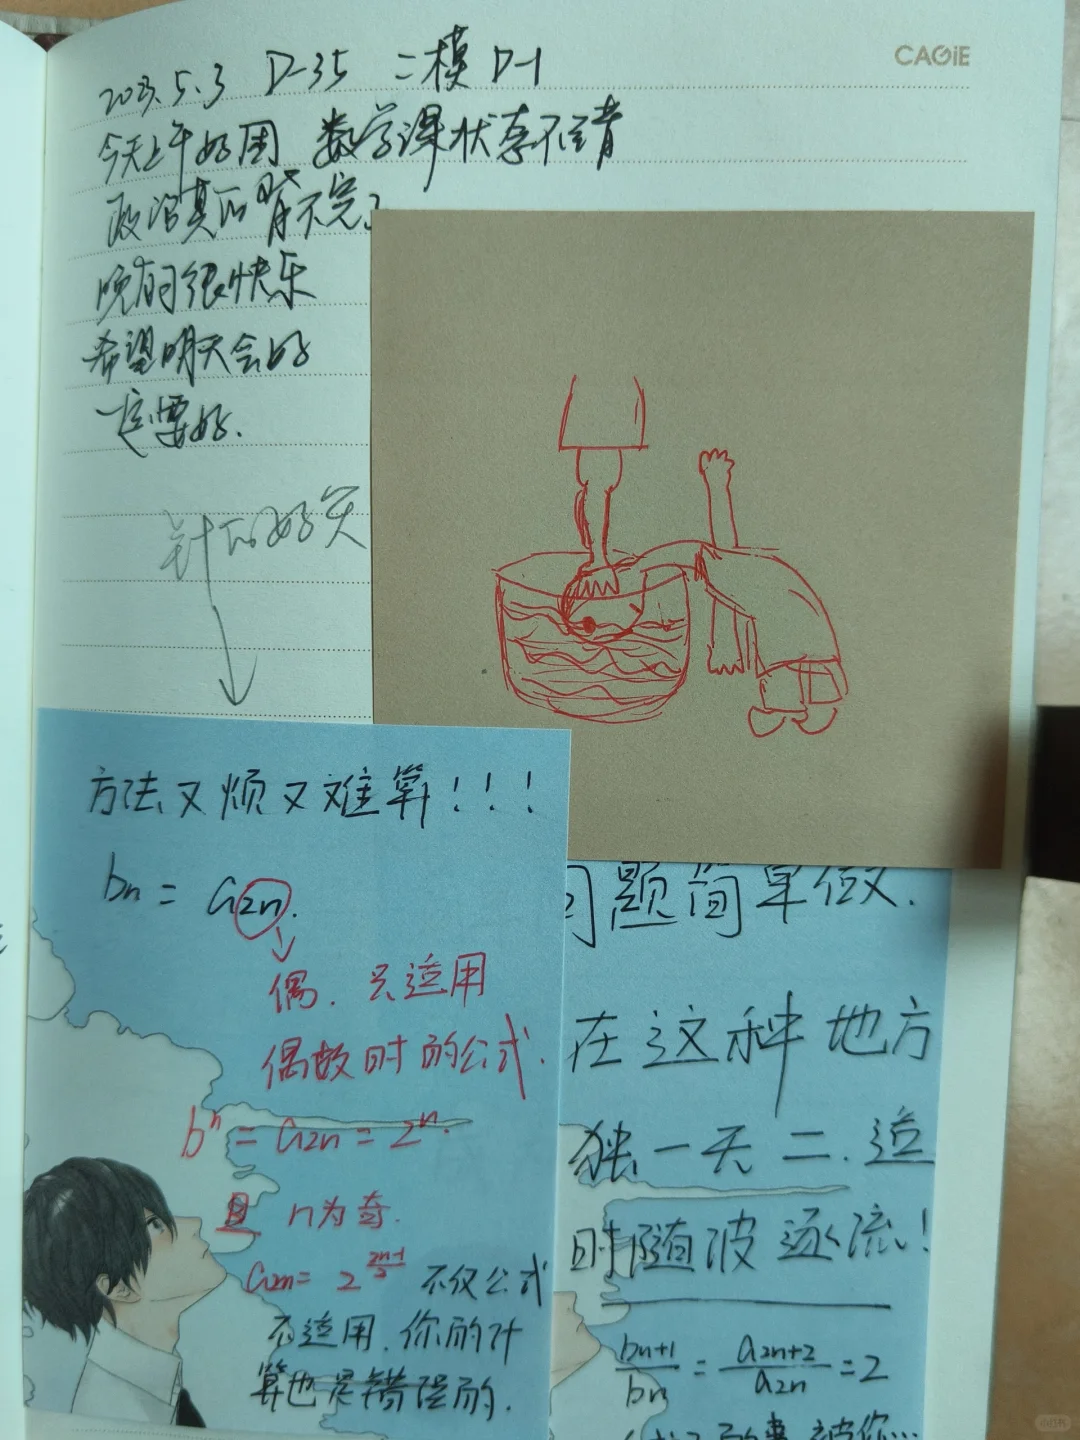 CAGIE
2023.5.3 D-35 二模 D-1
今天上午好困 数学课状态不错
政治真的背不完了
晚自习很快乐
希望明天会好
一定要好.
真的好笑
方法又烦又难算!!!
bn = a2n.
偶. 只适用
偶数时的公式.
b^n = a2n = 2^n.
且 n为奇.
a2n = 2^(2n-1)/2 不仅公式
不适用. 你的计
算也是错误的.
问题简单做.
在这种地方
独一无二. 适
时随波逐流!
bn+1/bn = a2n+2/a2n = 2
小红书